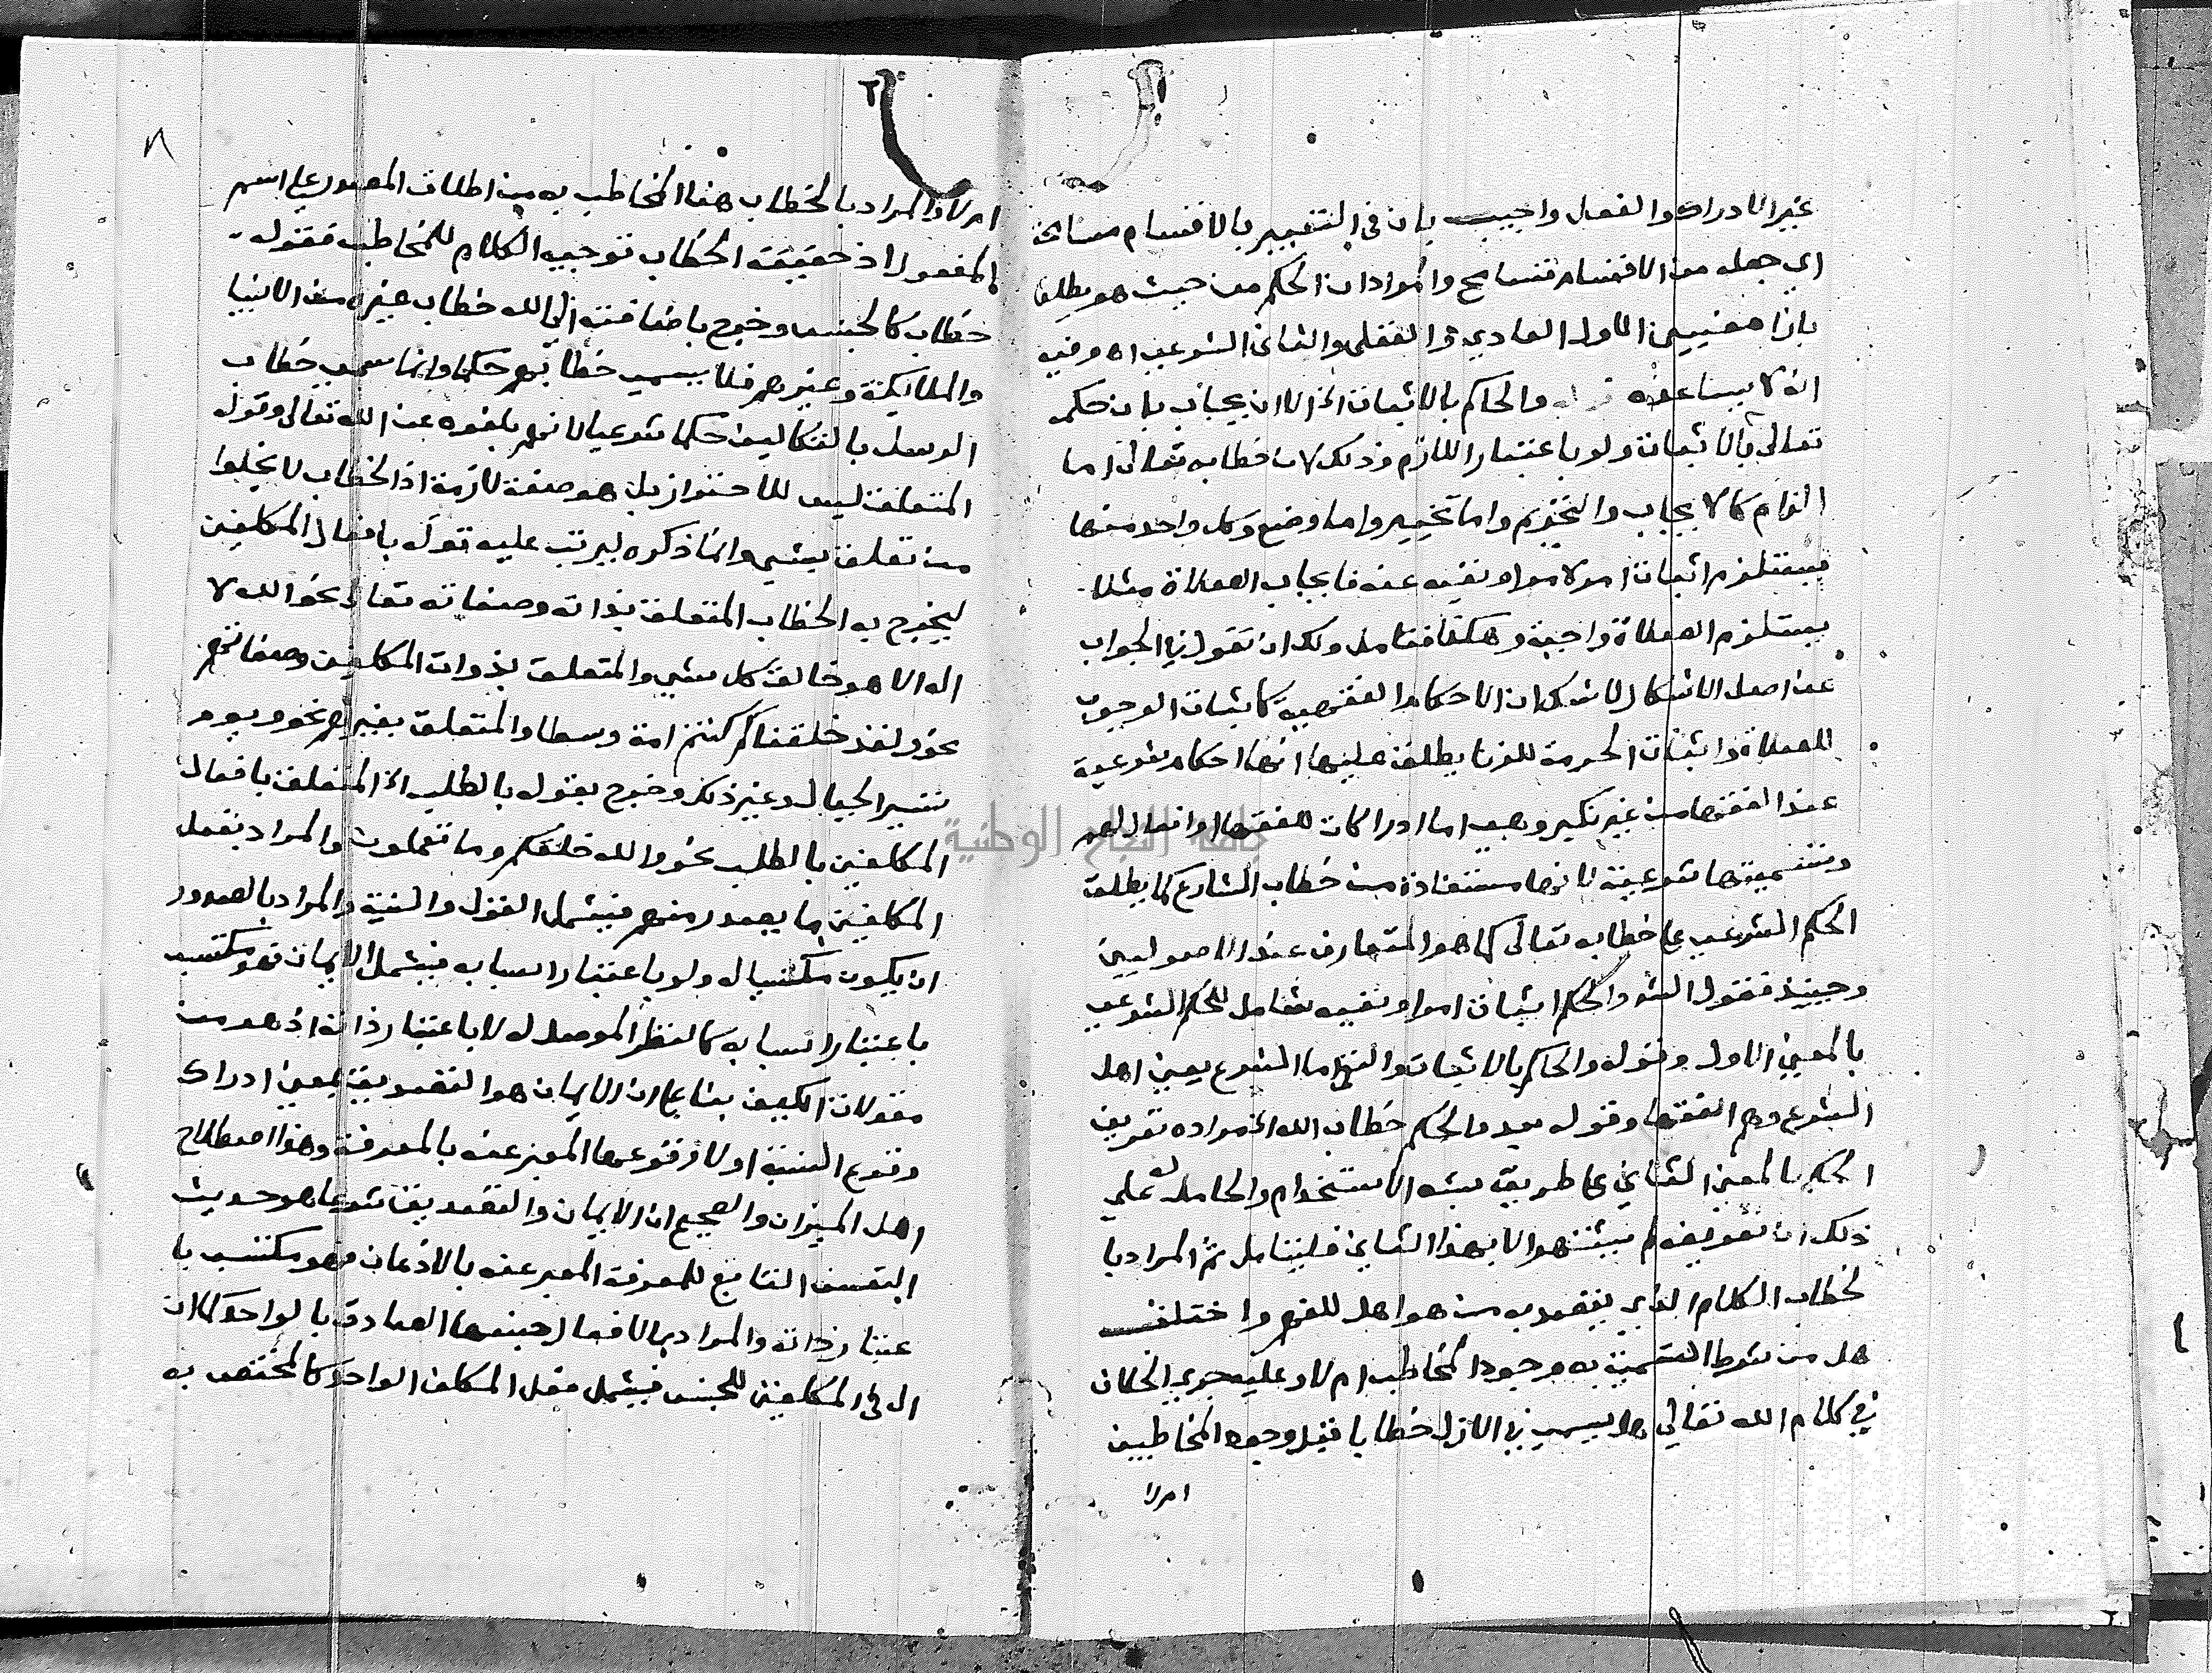 غير الادراك والفعل واجيب بان في التعبير بالاقسام مسامحة
اي جعله من الاقسام تسامح والمراد ان الحكم من حيث هو يطلق
بازا معنيين الاول العادي والعقلي والثاني الشرعي اه وفيه
انه لا يساعده قوله والحاكم بالاثبات الخ الا ان يجاب بان حكمه
تعالى بالاثبات ولو باعتبار اللازم وذلك لان خطابه تعالى اما
الزام كالايجاب والتحريم واما تخيير واما وضع وكل واحد منها
يستلزم اثبات امر لامر او نفيه عنه فايجاب الصلاة مثلا
يستلزم الصلاة واجبة وهكذا فتامل ولك ان تقول في الجواب
عن اصل الاشكال لا شك ان الاحكام الفقهية كاثبات الوجوب
للصلاة واثبات الحرمة للزنا يطلق عليها انها احكام شرعية
عند الفقها من غير نكير وهي اما ادراكات للفقها او افعال لهم
وتسميتها شرعية لانها مستفادة من خطاب الشارع كما يطلق
الحكم الشرعي على خطابه تعالى كما هو المتعارف عند الاصوليين
وحينيذ فقول الش والحكم اثبات امر او نفيه شامل للحكم الشرعي
بالمعني الاول وقوله والحاكم بالاثبات والنفي اما الشرع يعني اهل
الشرع وهم الفقها وقوله بعد فالحكم خطاب الله الخ مراده تعريف
الحكم بالمعني الثاني على طريق شبه الاستخدام والحامل له علي
ذلك ان تعريفه لم يشتهر الا بهذا الثاني فليتامل ثم المراد با
لخطاب الكلام الذي يقصد به من هو اهل للفهم واختلف
هل من شرط التسمية به وجود المخاطب ام لا وعليه جري الخلاف
في كلام الله تعالي هل يسمي في الازل خطابا قبل وجود المخاطبين
ام لا
ام لا والمراد بالخطاب هنا المخاطب به من اطلاق المصدر علي اسم
المفعول اذ حقيقة الخطاب توجيه الكلام للمخاطب فقوله
خطاب كالجنس وخرج باضافته الى الله خطاب غيره من الانبيا
والملايكة وغيرهم فلا يسمي خطابهم حكما وانما سمي خطاب
الرسل بالتكاليف حكما شرعيا لانهم بلغوه عن الله تعالى وقوله
المتعلق ليس للاحتراز بل هو صفة لازمة اذ الخطاب لا يخلوا
من تعلق بشي وانما ذكره ليرتب عليه قوله بافعال المكلفين
ليخرج به الخطاب المتعلق بذاته وصفاته تعالى نحو الله لا
اله الا هو خالق كل شي والمتعلق بذوات المكلفين وصفاتهم
نحو ولقد خلقناكم كنتم امة وسطا والمتعلق بغيرهم نحو ويوم
تسير الجبال وغير ذلك وخرج بقوله بالطلب الخ المتعلق بافعال
المكلفين بالطلب نحو والله خلقكم وما تعملون والمراد بفعل
المكلفين ما يصدر منهم فيشمل القول والنية والمراد بالصدور
ان يكون مكتسبا له ولو باعتبار اسبابه فيشمل الايمان فهو مكتسب
باعتبار اسبابه كالنظر الموصل له لا باعتبار ذاته اذ هو من
مقولات الكيف بنا على ان الايمان هو التصديق بمعني ادراك
وقوع النسبة او لا وقوعها المعبر عنه بالمعرفة وهذا اصطلاح
اهل الميزان والصحيح ان الايمان والتصديق شرعا هو حديث
النفس التابع للمعرفة المعبر عنه بالاذعان فهو مكتسب با
عتبار ذاته والمراد بالافعال جنسها الصادق بالواحد كما ان
ال في المكلفين للجنس فيشمل فعل المكلف الواحد كالمختص به
جامعة النجاح الوطنية